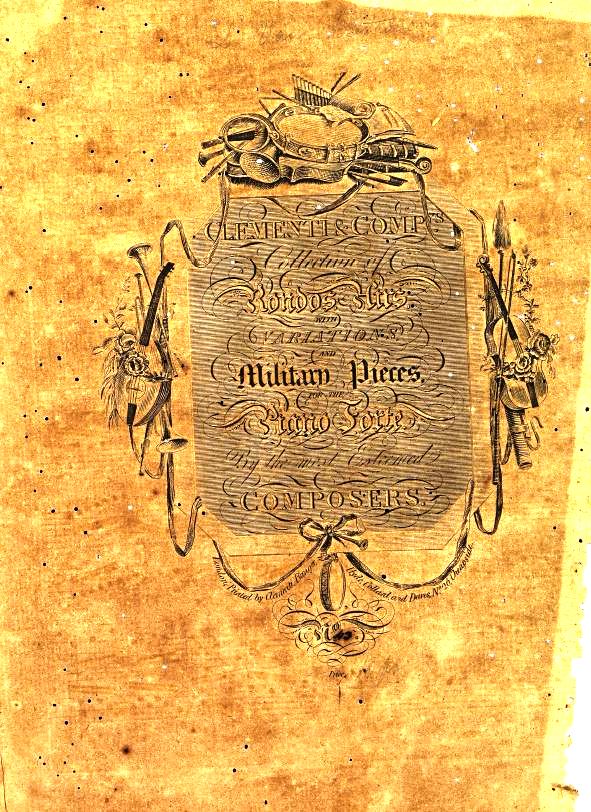 CLEMENTI & COMPY'S
Collection of
Rondos Airs,
WITH
VARIATIONS
AND
Military Pieces,
FOR THE
Piano Forte,
By the most Esteemed
COMPOSERS.
London, Printed by Clementi, Banger, Collard and Davis, No. 26, Cheapside
No.
Price